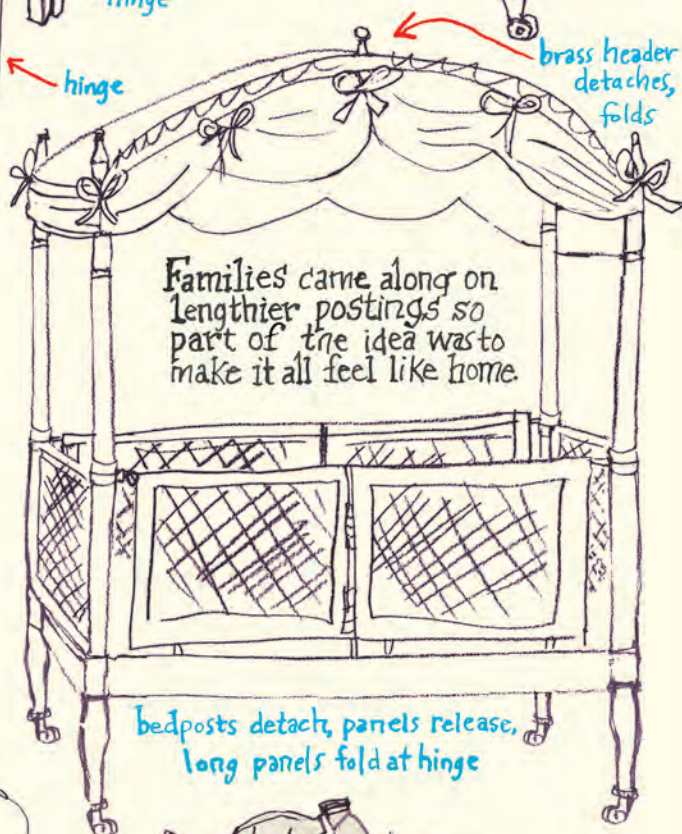 hinge
brass header
detaches,
folds
hinge
Families came along on
lengthier postings so
part of the idea was to
make it all feel like home.
bedposts detach, panels release,
long panels fold at hinge